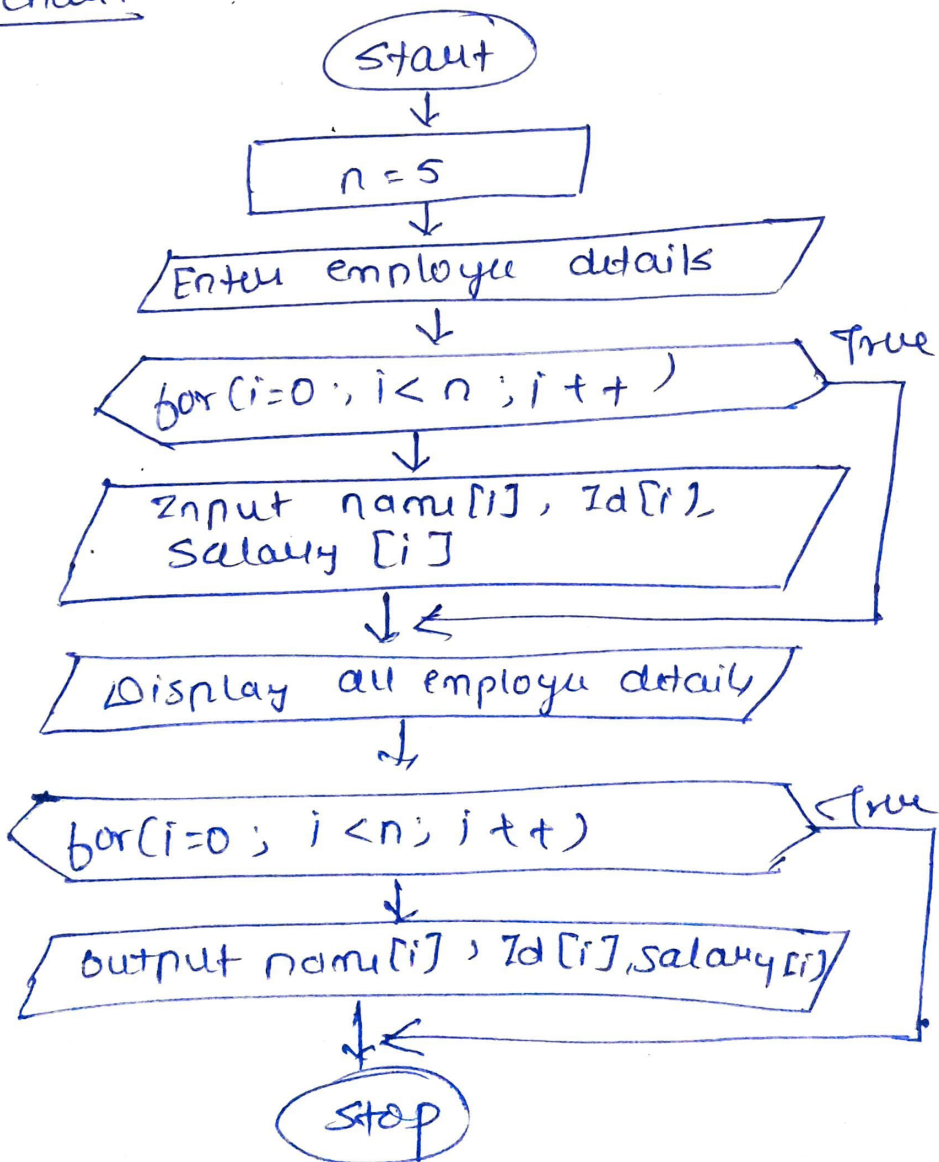 Start
n = 5
Enter employee details
for(i=0; i<n; i++)
True
Input name[i], Id[i],
Salary [i]
Display all employee details
for(i=0; i<n; i++)
True
output name[i], Id[i], salary[i]
Stop